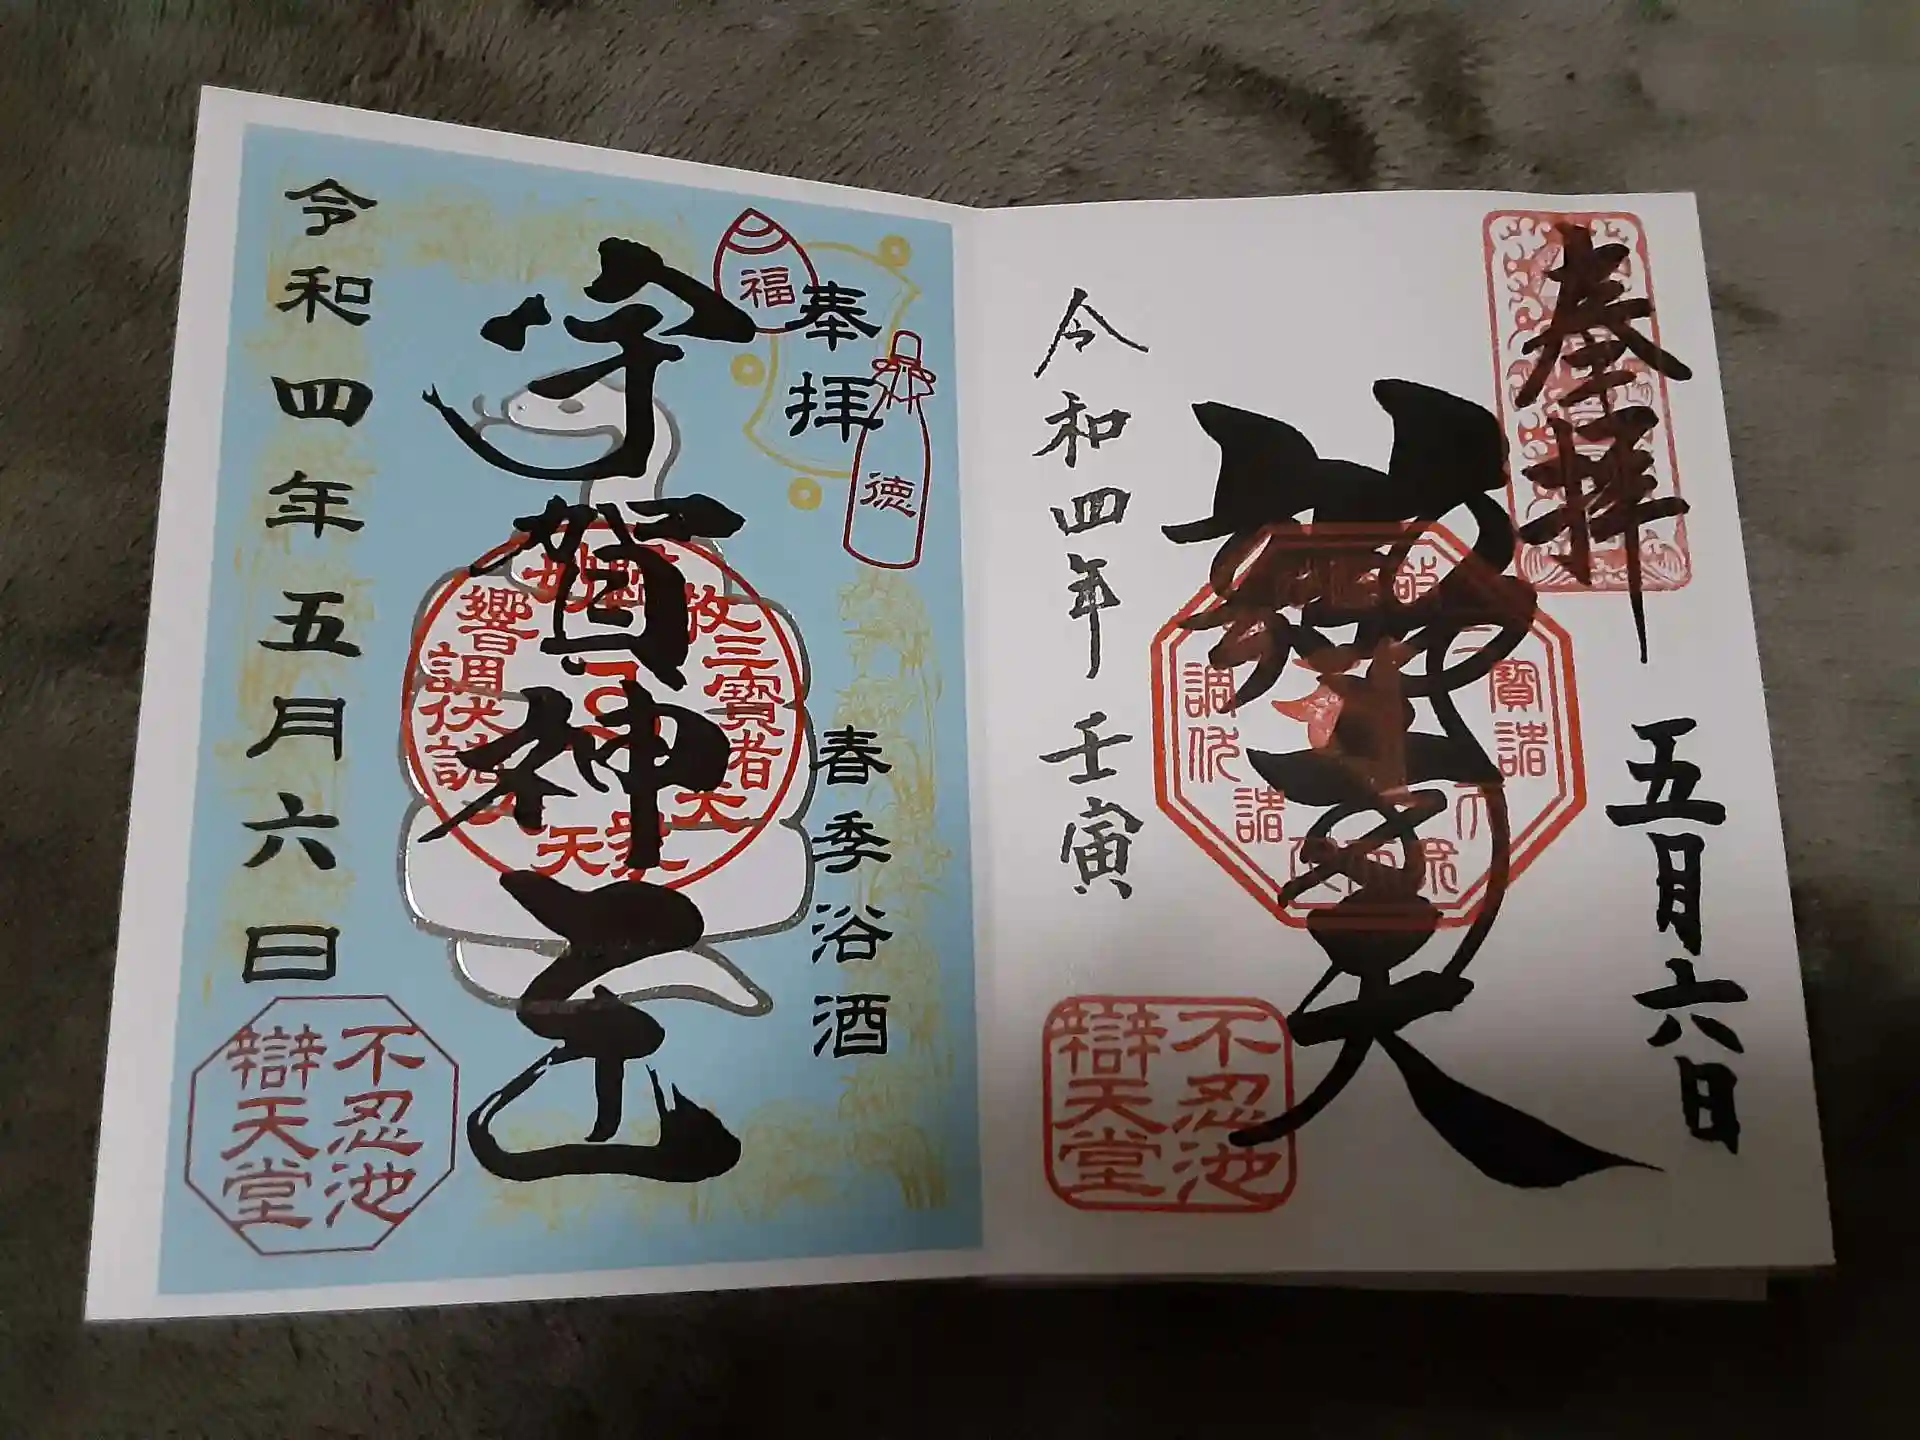 奉拝
五月六日
辯才天
令和四年 壬寅
不忍池
辯天堂
福
徳
奉拝
春季浴酒
宇賀神王
三寶者
響
調伏諸
令和四年五月六日
不忍池
辯天堂